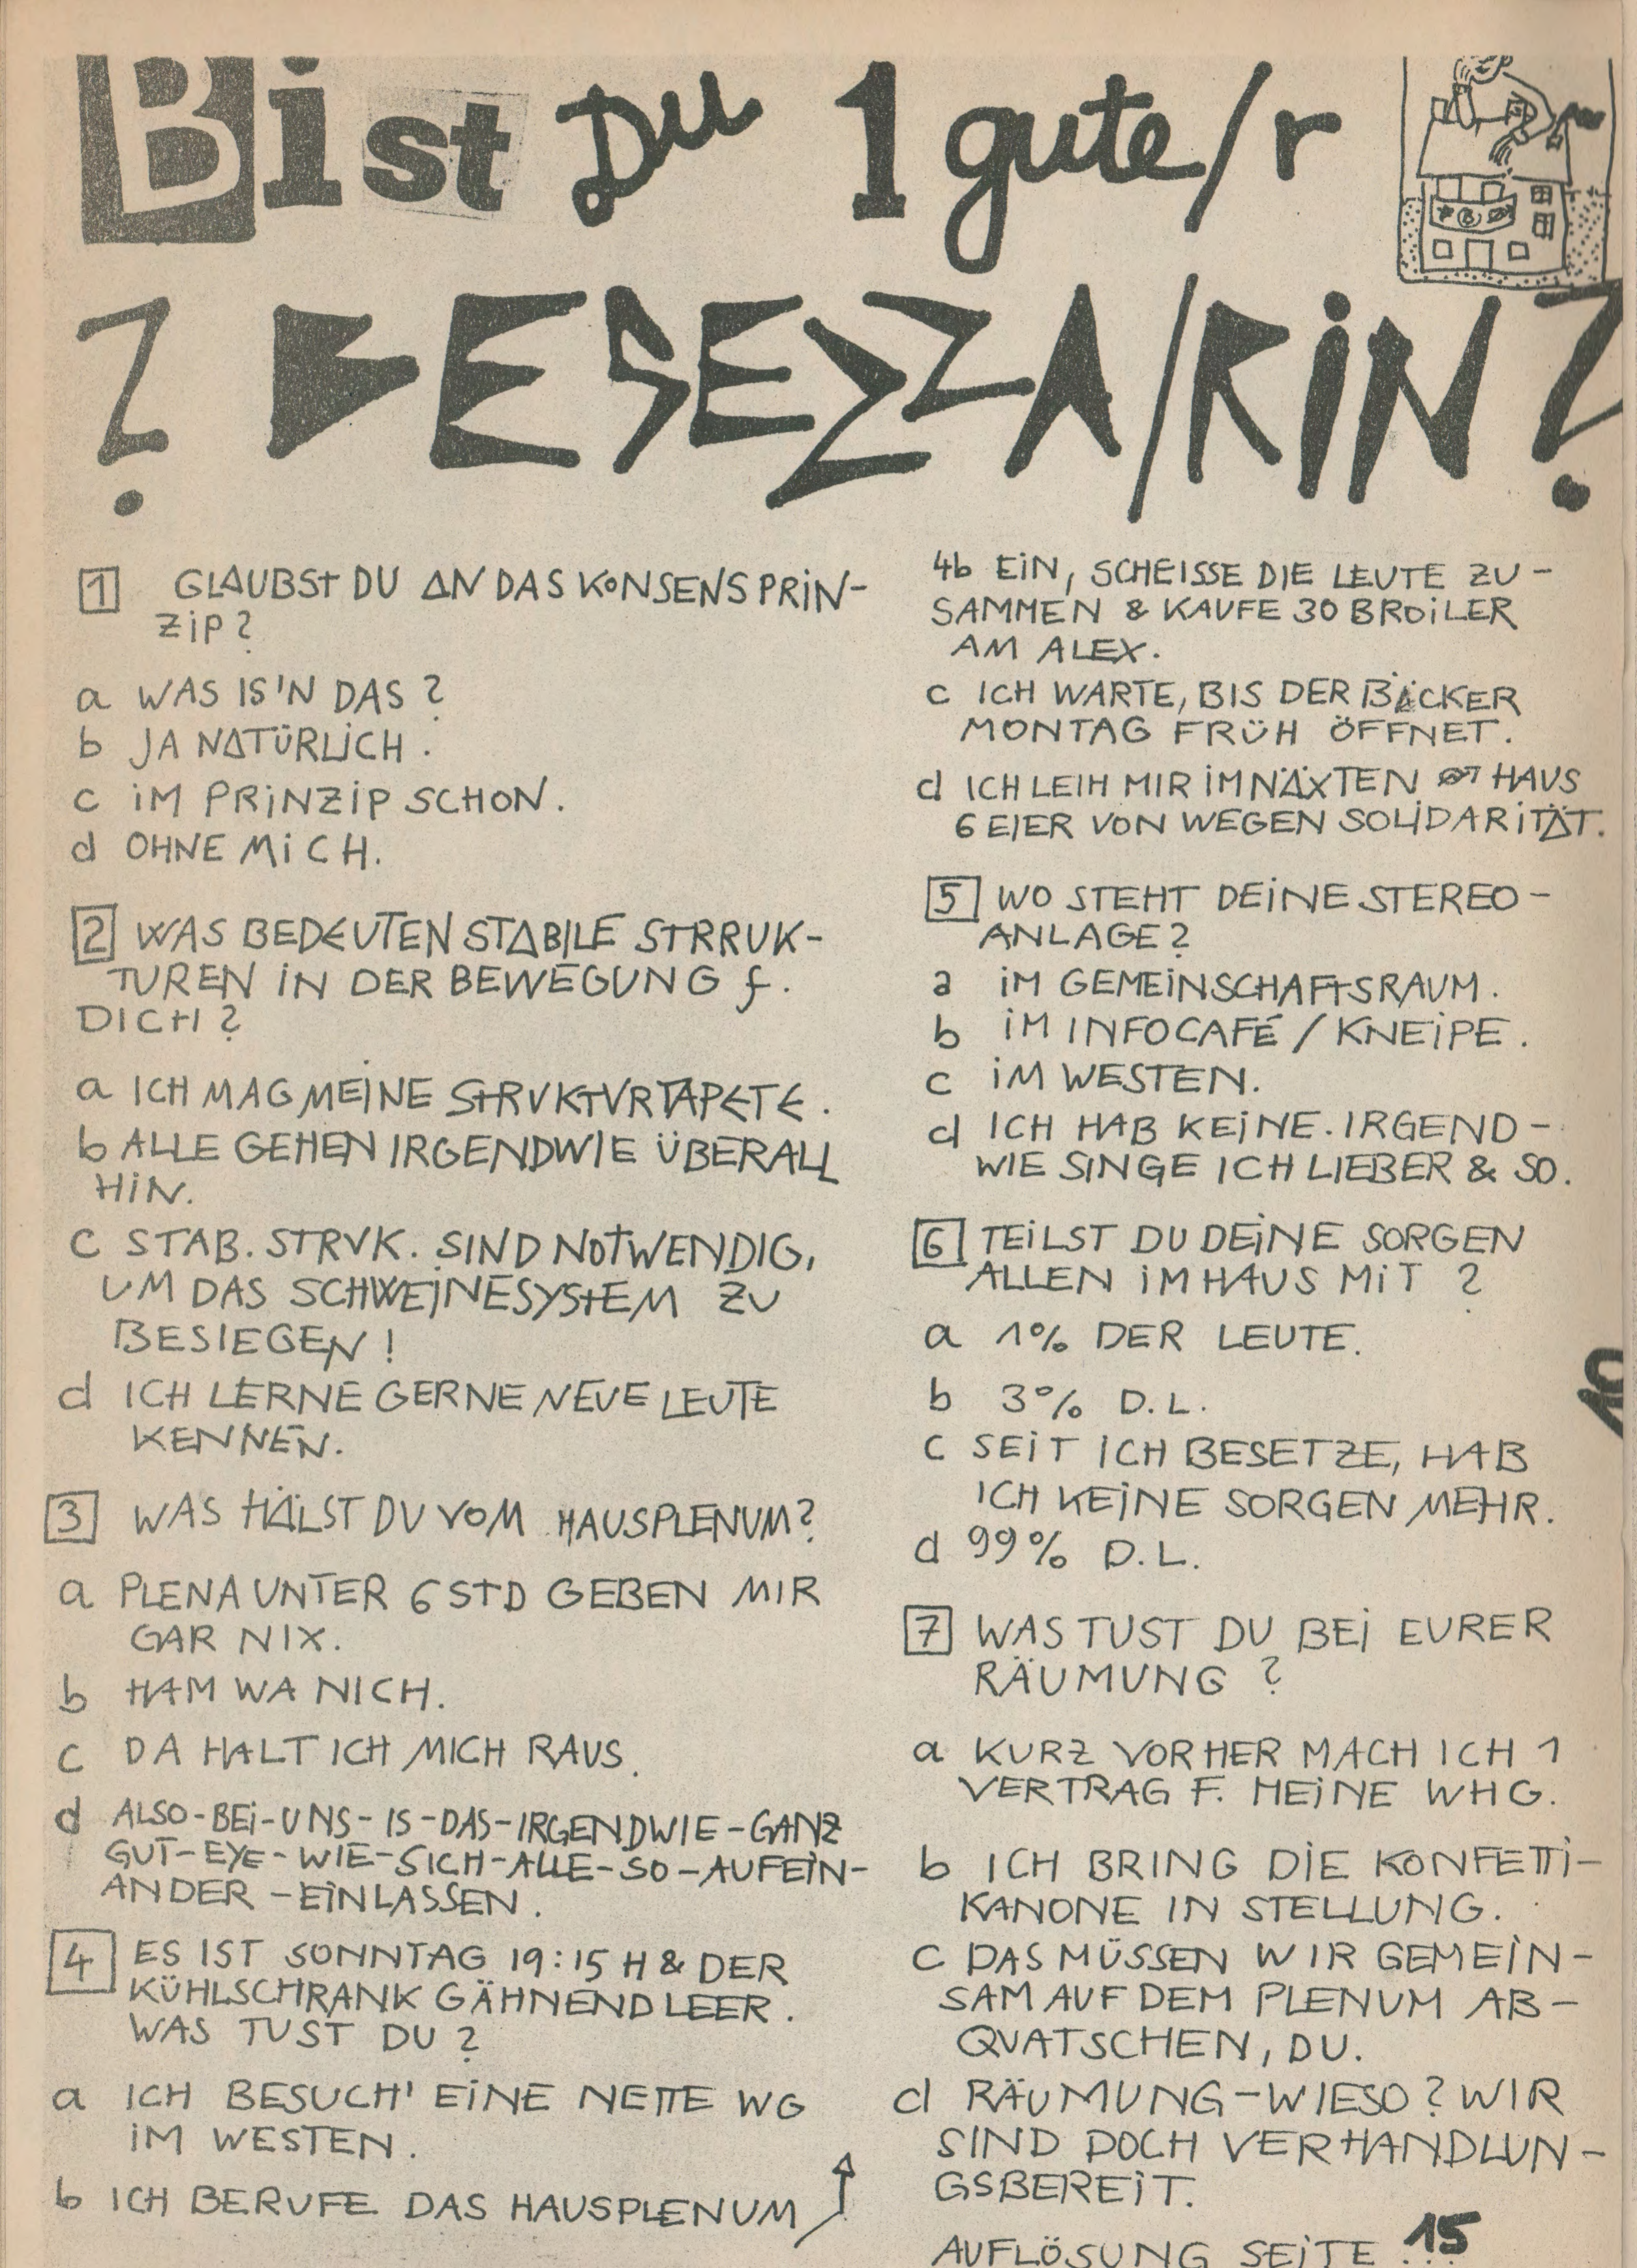 Bist Du 1 gute/r
? BESEZZA/RiN ?
1 GLAUBST DU AN DAS KONSENSPRiN-
ZiP?
a WAS IS'N DAS?
b JA NATÜRLiCH.
c iM PRiNZiP SCHON.
d OHNE MiCH.
2 WAS BEDEUTEN STABILE STRRUK-
TUREN iN DER BEWEGUNG f.
DICH?
a ICH MAG MEiNE STRUKTURTAPETE.
b ALLE GEHEN IRGENDWIE ÜBERALL
HiN.
c STAB. STRUK. SIND NOTWENDIG,
UM DAS SCHWEiNESYSTEM ZU
BESIEGEN!
d ICH LERNE GERNE NEUE LEUTE
KENNEN.
3 WAS HÄLST DU VOM HAUSPLENUM?
a PLENA UNTER 6 STD GEBEN MIR
GAR NIX.
b HAM WA NICH.
c DA HALT ICH MICH RAUS.
d ALSO-BEi-UNS-IS-DAS-IRGENDWIE-GANZ
GUT-EYE-WIE-SICH-ALLE-SO-AUFEiN-
ANDER-EiNLASSEN.
4 ES IST SONNTAG 19:15 H & DER
KÜHLSCHRANK GÄHNEND LEER.
WAS TUST DU?
a ICH BESUCH' EiNE NETTE WG
iM WESTEN.
b ICH BERUFE DAS HAUSPLENUM
4b EiN, SCHEISSE DIE LEUTE ZU-
SAMMEN & KAUFE 30 BROiLER
AM ALEX.
c ICH WARTE, BIS DER BÄCKER
MONTAG FRÜH ÖFFNET.
d ICH LEIH MIR iM NÄXTEN HAUS
6 EIER VON WEGEN SOLIDARiTÄT.
5 WO STEHT DEiNE STEREO-
ANLAGE?
a iM GEMEiNSCHAFTSRAUM.
b iM INFOCAFÉ / KNEiPE.
c iM WESTEN.
d ICH HAB KEiNE. IRGEND-
WIE SINGE ICH LIEBER & SO.
6 TEiLST DU DEiNE SORGEN
ALLEN iM HAUS MiT?
a 1% DER LEUTE.
b 3% D.L.
c SEiT ICH BESETZE, HAB
ICH KEiNE SORGEN MEHR.
d 99% D.L.
7 WAS TUST DU BEi EURER
RÄUMUNG?
a KURZ VORHER MACH ICH 1
VERTRAG F. MEiNE WHG.
b ICH BRING DiE KONFETTi-
KANONE IN STELLUNG.
c DAS MÜSSEN WIR GEMEiN-
SAM AUF DEM PLENUM AB-
QUATSCHEN, DU.
d RÄUMUNG-WIESO? WIR
SIND DOCH VERHANDLUN-
GSBEREiT.
AUFLÖSUNG SEiTE 15